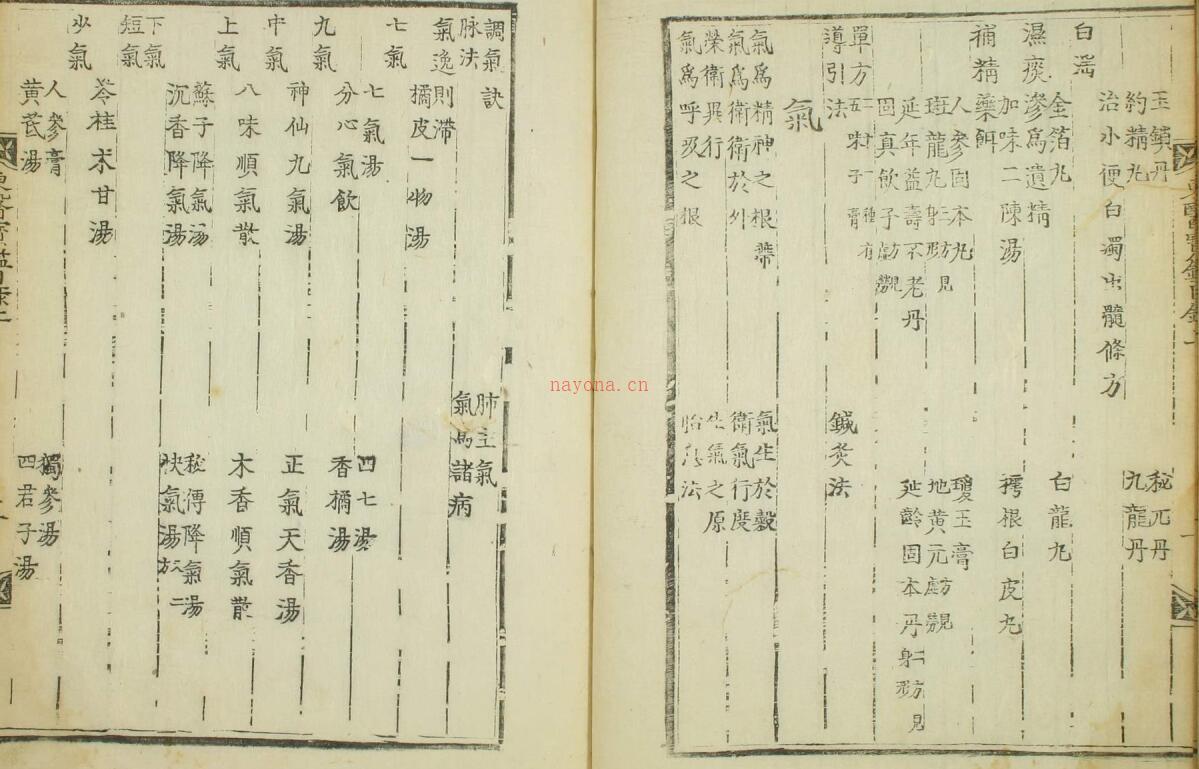 玉鎖丹
秘元丹
約精丸
九龍丹
治小便白濁出髓條方
白淫
金箔丸
白龍丸
濕痰滲爲遺精
加味二陳湯
樗根白皮丸
補精
藥餌
人參固本丸
瓊玉膏
斑龍丸二方見身形
地黃元
延年益壽不老丹
延齡固本丹二方見身形
固真飮子
單方
五味子膏
導引法
鍼灸法
氣
氣爲精神之根蔕
氣生於穀
氣爲衛衛於外
衛氣行度
榮衛異行
生氣之原
氣爲呼吸之根
胎息法
調氣訣
肺主氣
脉法
氣爲諸病
氣逸則滯
橘皮一物湯
七氣
七氣湯
四七湯
分心氣飮
香橘湯
九氣
神仙九氣湯
正氣天香湯
中氣
八味順氣散
木香順氣散
上氣
蘇子降氣湯
秘傳降氣湯
沉香降氣湯
快氣湯方二
下氣
短氣
苓桂朮甘湯
少氣
人參膏
獨參湯
黃芪湯
四君子湯
nayona.cn